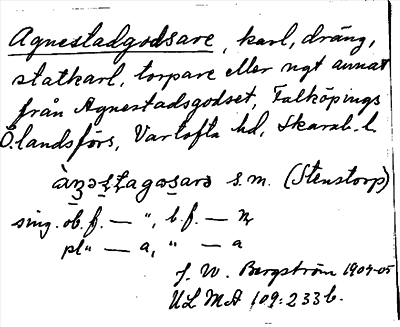 Agnestadgodsare, karl, dräng,
statkarl, torpare eller ngt annat
från Agnestadsgodset, Falköpings
Ö. landsförs, Vartofta hd, Skarab. l.
s.m. (Stenstorp)
sing. ob. f. — ", b. f. — n
pl" — a, " — a
J. W. Bergström 1904-05
ULMA 109:233b.